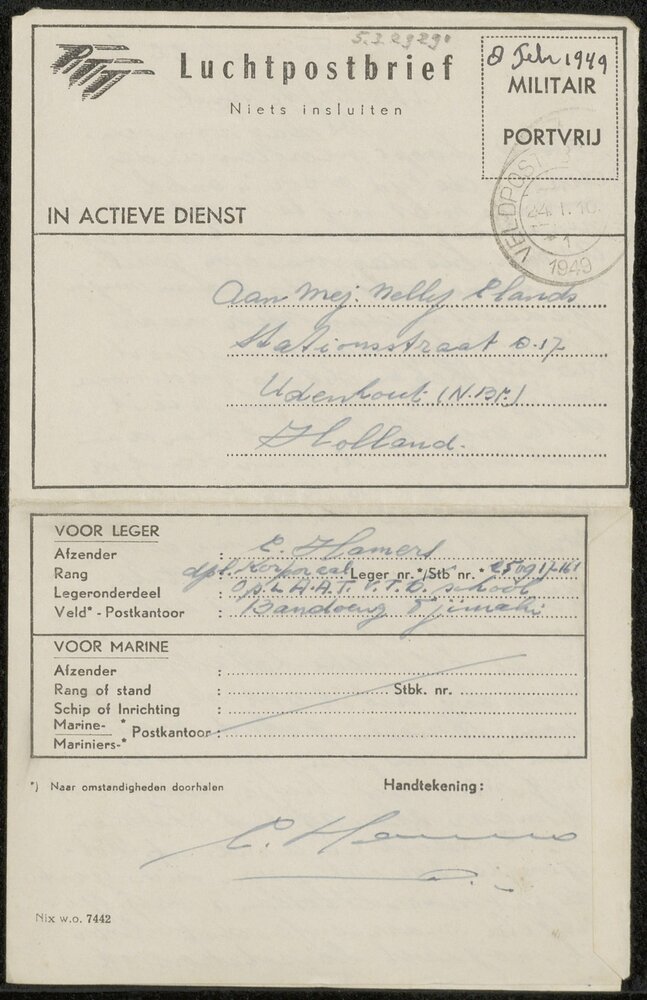 5.3.2929
PTT Luchtpostbrief
Niets insluiten
8 Feb 1949
MILITAIR
PORTVRIJ
VELDPOST
24.1.10
1
1949
IN ACTIEVE DIENST
Aan Mej. Nelly Elands
Stationsstraat D.17
Udenhout (N.Br.)
Holland.
VOOR LEGER
Afzender : C. Hamers
Rang dpl. Korporaal Leger nr.*/Stb nr.*
Legeronderdeel : O.p.L.A.A.T. V.T.O. school
Veld* - Postkantoor : Bandoeng Tjimahi
VOOR MARINE
Afzender :
Rang of stand : Stbk. nr.
Schip of Inrichting :
Marine-* Postkantoor :
Mariniers-*
*) Naar omstandigheden doorhalen
Handtekening:
C. Hamers
Nix w.o. 7442